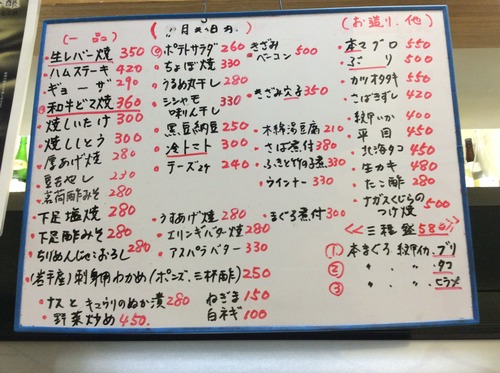 (一品)
・生レバー焼 350
・ハムステーキ 420
・ギョーザ 290
・和牛ピザ焼 360
・焼しいたけ 300
・焼ししとう 300
・厚あげ焼 280
・豆もやし 230
・茗荷酢みそ 280
・下足塩焼 280
・下足酢みそ 280
・ちりめんじゃこおろし 280
(岩手産)刺身用わかめ(ポンズ、三杯酢) 250
・ナスとキュウリのぬか漬 280
・野菜炒め 450.
月 日
・ポテトサラダ 260
・ちょぼ焼 330
・うるめ丸干し 280
・シシャモ味りん干し 330
・黒豆納豆 250
・冷トマト 300
・チーズ 240
・うすあげ焼 280
・エリンギバター焼 280
・アスパラバター 330
ねぎま 150
白ネギ 100
・きざみベーコン 500
・きざみ穴子 350
・木綿湯豆腐 210
・さば煮付 380
・ふきと竹の子煮 330
・ウインナー 330
・まぐろ煮付 300
(お造り、他)
・本マグロ 550
・ぶり 500
・カツオタタキ 550
・さばきずし 420
・紋甲いか 400
・平目 450
・北海タコ 450
・生カキ 480
・たこ酢 280
・ナガスくじらのつけ焼 500
<<三種盛 580
① 本まぐろ 紋甲イカ、ブリ
② 〃 〃 、タコ
③ 〃 〃 、ヒラメ